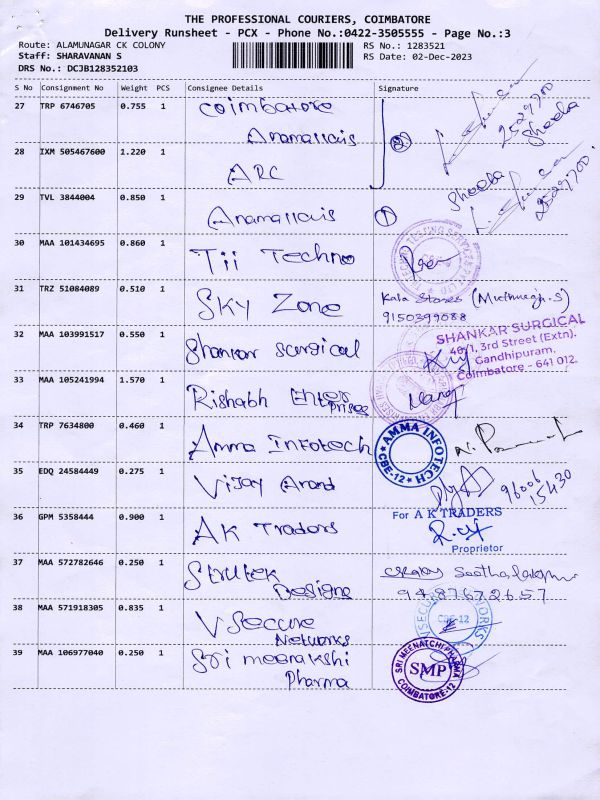 THE PROFESSIONAL COURIERS, COIMBATORE
Delivery Runsheet - PCX - Phone No.:0422-3505555 - Page No.:3
Route: ALAMUNAGAR CK COLONY
RS No.: 1283521
Staff: SHARAVANAN S
RS Date: 02-Dec-2023
DRS No.: DCJB128352103
S No Consignment No Weight PCS Consignee Details Signature
27 TRP 6746705 0.755 1 Coimbatore
Anamallais
28 IXM 505467600 1.220 1 ARC
2
Sheeba
29 TVL 3844004 0.850 1 Anamallais 1 Sheeba
30 MAA 101434695 0.860 1 Tii Techno
31 TRZ 51084089 0.510 1 SKY Zone Kala Stores
9150399088
32 MAA 103991517 0.550 1 Shankar Surgical
SHANKAR SURGICAL
46/1, 3rd Street (Extn).
Gandhipuram,
Coimbatore - 641 012.
33 MAA 105241994 1.570 1 Rishabh Enter
Prises
34 TRP 7634800 0.460 1 Amma Infotech AMMA INFOTECH
CBE-12
35 EDQ 24584449 0.275 1 Vijay Anand 96006
15430
36 GPM 5358444 0.900 1 AK Traders
For A K TRADERS
Proprietor
37 MAA 572782646 0.250 1 Strutek
Designe
9487672657
38 MAA 571918305 0.835 1 V Secure
Networks
CBE-12
39 MAA 106977040 0.250 1 Sri meenakshi
Pharma
SRI MEENATCHI PHARMA
SMP
COIMBATORE-12